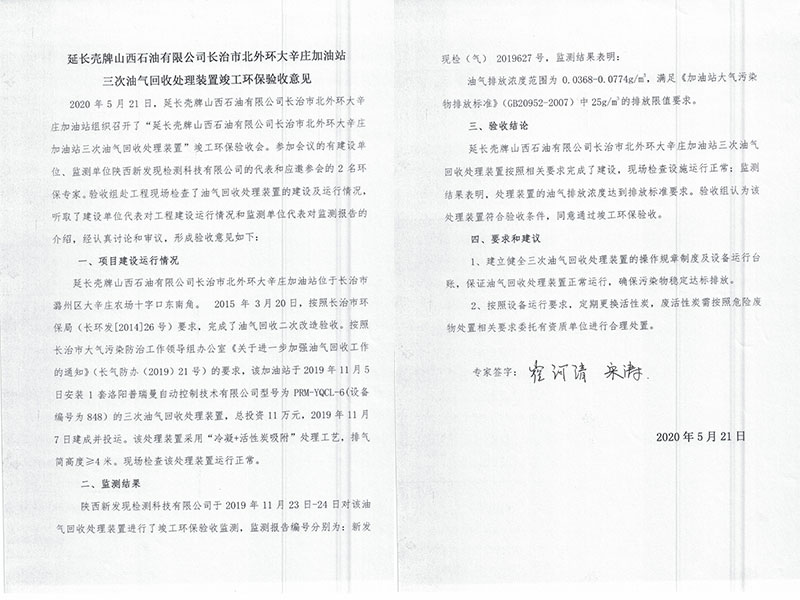 延长壳牌山西石油有限公司长治市北外环大辛庄加油站
三次油气回收处理装置竣工环保验收意见
2020 年 5 月 21 日，延长壳牌山西石油有限公司长治市北外环大辛
庄加油站组织召开了“延长壳牌山西石油有限公司长治市北外环大辛庄
加油站三次油气回收处理装置”竣工环保验收会。参加会议的有建设单
位、监测单位陕西新发现检测科技有限公司的代表和应邀参会的 2 名环
保专家。验收组赴工程现场检查了油气回收处理装置的建设及运行情况，
听取了建设单位代表对工程建设运行情况和监测单位代表对监测报告的
介绍，经认真讨论和审议，形成验收意见如下：
一、项目建设运行情况
延长壳牌山西石油有限公司长治市北外环大辛庄加油站位于长治市
潞州区大辛庄农场十字口东南角。 2015 年 3 月 20 日，按照长治市环
保局（长环发[2014]26 号）要求，完成了油气回收二次改造验收。按照
长治市大气污染防治工作领导组办公室《关于进一步加强油气回收工作
的通知》（长气防办（2019）21 号）的要求，该加油站于 2019 年 11 月 5
日安装 1 套洛阳普瑞曼自动控制技术有限公司型号为 PRM-YQCL-6(设备
编号为 848）的三次油气回收处理装置，总投资 11 万元，2019 年 11 月
7 日建成并投运。该处理装置采用“冷凝+活性炭吸附”处理工艺，排气
筒高度≥4 米。现场检查该处理装置运行正常。
二、监测结果
陕西新发现检测科技有限公司于 2019 年 11 月 23 日-24 日对该油
气回收处理装置进行了竣工环保验收监测，监测报告编号分别为：新发
现检（气） 2019627 号，监测结果表明：
油气排放浓度范围为 0.0368-0.0774g/m³，满足《加油站大气污染
物排放标准》（GB20952-2007）中 25g/m³的排放限值要求。
三、验收结论
延长壳牌山西石油有限公司长治市北外环大辛庄加油站三次油气
回收处理装置按照相关要求完成了建设，现场检查设施运行正常；监测
结果表明，处理装置的油气排放浓度达到排放标准要求。验收组认为该
处理装置符合验收条件，同意通过竣工环保验收。
四、要求和建议
1、建立健全三次油气回收处理装置的操作规章制度及设备运行台
账，保证油气回收处理装置正常运行，确保污染物稳定达标排放。
2、按照设备运行要求，定期更换活性炭，废活性炭需按照危险废
物处置相关要求委托有资质单位进行合理处置。
专家签字：
2020 年 5 月 21 日